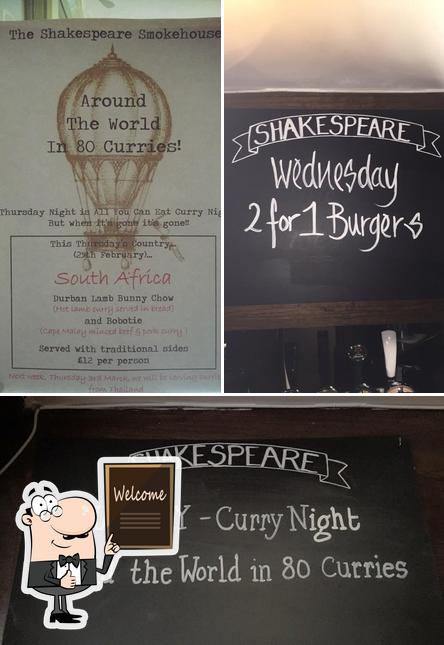 The Shakespeare Smokehouse
Around
The World
In 80 Curries!
Thursday Night is All You Can Eat Curry Nig
But when it's gone it's gone!!
This Thursday's Country...
(25th February)...
South Africa
Durban Lamb Bunny Chow
(Hot lamb curry served in bread)
and Bobotie
(Cape Malay minced beef & pork curry)
Served with traditional sides
£12 per person
Next week, Thursday 3rd March, we will be serving curries
from Thailand
SHAKESPEARE
Wednesday
2 for 1 Burgers
SHAKESPEARE
Y - Curry Night
the World in 80 Curries
Welcome